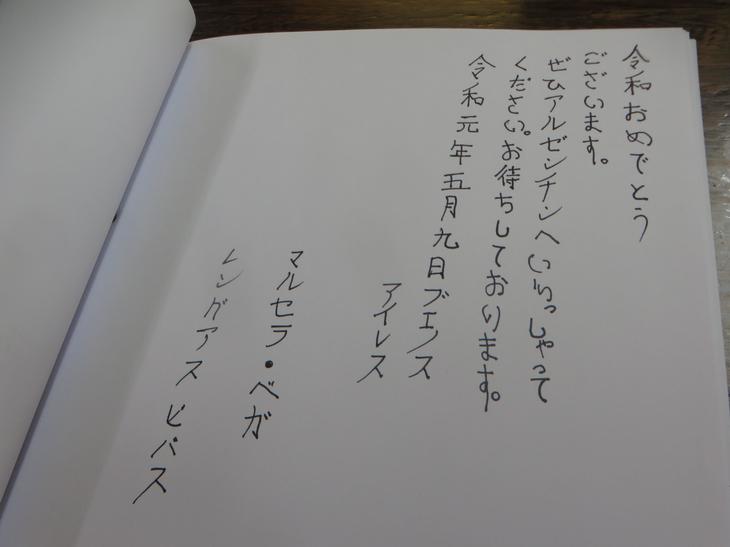 令和おめでとう
ございます。
ぜひアルゼンチンへいらっしゃって
ください。お待ちしております。
令和元年五月九日ブエノス
アイレス
マルセラ・ベガ
レングアス ビバス